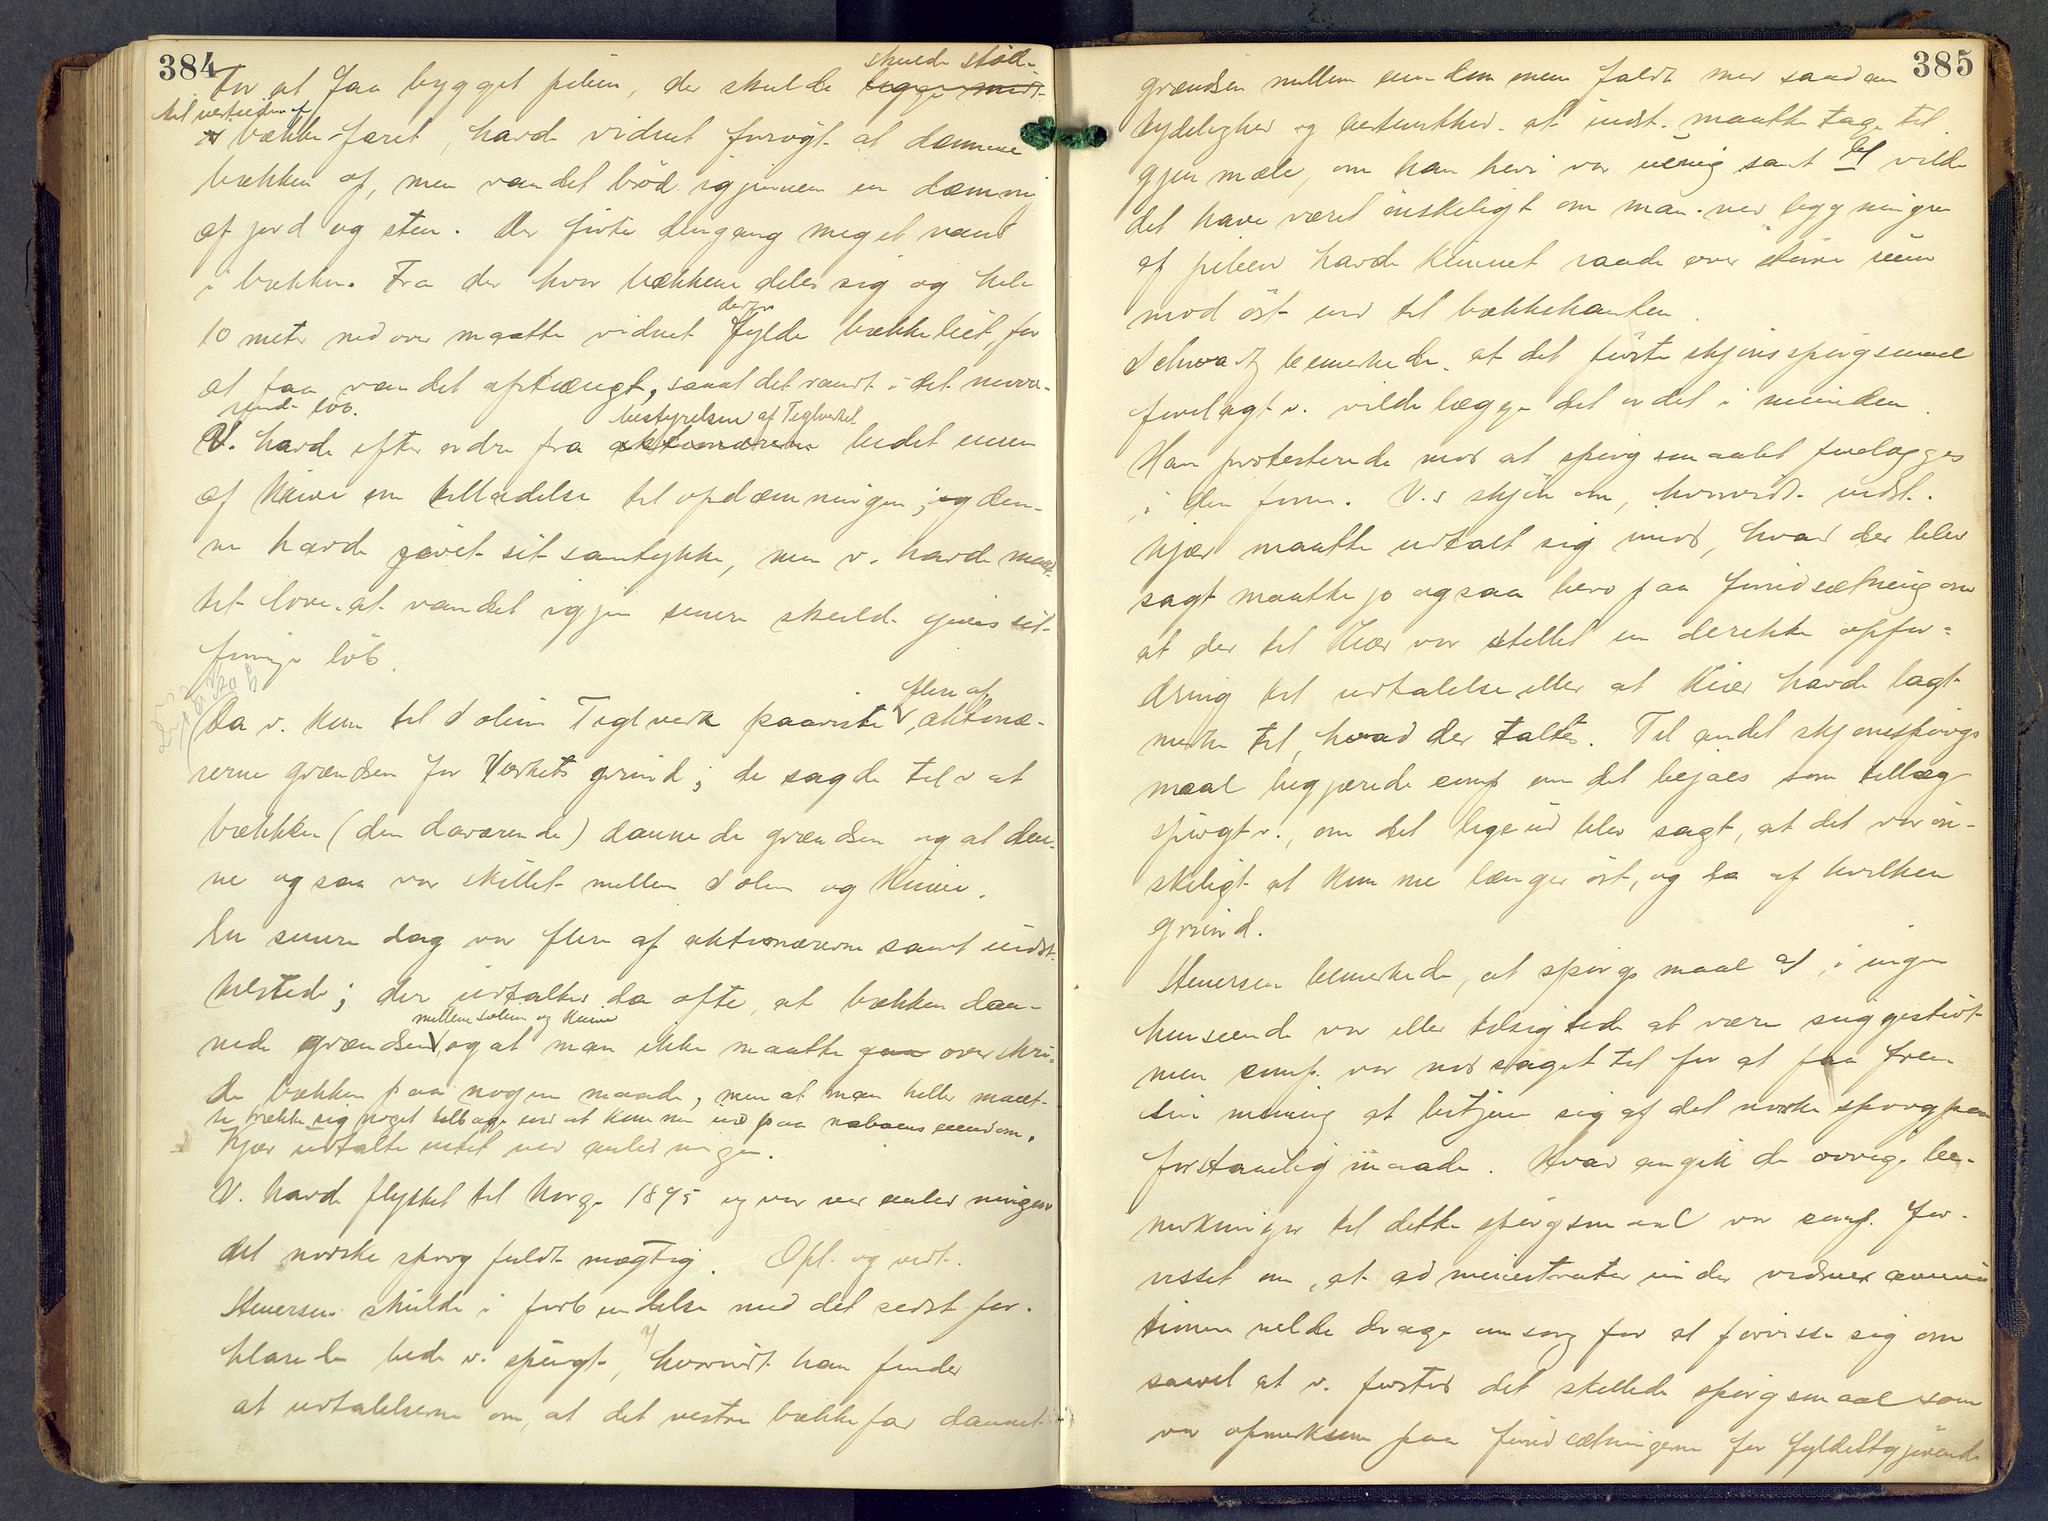 384
For at faa bygget pelien, der skulde skulde stöde
til vestsiden af
bække faret, havde vidnet forsøgt at dæmme
bækken af, men vandet bröd igjennem en dæmning
af jord og sten. Der förte dengang meget vand
i bækken. Fra der hvor bækkene deler sig og hele
10 meter nedover maatte vidnet derfor fylde bækkeleiet, for
at faa vandet afstængt, saaat det randt i det nuvæ-
rende löb.
V. havde efter ordre fra bestyrelsen af Teglverket bedet
af om tilladelse til opdæmningen; og den-
ne havde givet sit samtykke, men v. havde maat-
tet love at vandet igjen senere skulde gives sit
forrige löb.
Da v. kom til Solum Teglverk paaviste flere af aktionæ-
rerne grændsen for Verkets grund; de sagde til v at
bækken (den daværende) dannede grændsen og at den-
ne ogsaa var skillet mellem Solum og
En senere dag var flere af aktionærerne samt indst.
tilstede; der udtaltes da ofte, at bækken dan-
nede grændsen mellem Solum og og at man ikke maatte overskri-
de bækken paa nogen maade, men at man heller maat-
te trække sig noget tilbage end at komme ind paa naboens eiendom.
Kjær udtalte intet ved anledningen.
V. havde flyttet til Norge 1895 og var ved anledningen
det norske sprog fuldt mægtig. Opl. og vedt.
Stenersen skulde i forbindelse med det sidst for-
klarede bede v. spurgt, a) hvorvidt han finder
at udtalelserne om, at det vestre bækkefar dannet
385
grændsen mellem eiendommene faldt med saadan
tydelighed og bestemthed at indst. maatte tage til
gjenmæle, om han heri var uenig samt b) vilde
det have været ønskeligt om man ved bygningen
af pelien havde kunnet raade over større rum
mod öst end til bækkekanten.
Schwartz bemerkede, at det første skjønsspørgsmaal
forelagt v. vilde lægge det ordet i munden.
Han protesterede mod at spørgsmaalet forelægges
i den form. V.s skjön om, hvorvidt indst.
Kjær maatte udtalt sig imod, hvad der blev
sagt maatte jo ogsaa bero paa forudsætning om
at der til Kiær var stillet en derekte opfor-
dring til udtalelse eller at Kiær havde lagt
merke til, hvad der taltes. Til andet skjönsspörgs
maal begjærede comp om det bejaes som tillæg
spurgt v., om det ligeud blev sagt, at det var øn-
skeligt at komme længer öst, og da af hvilken
grund.
Stenersen bemerkede, at spörgsmaal a), i ingen
henseende var eller tilsigtede at være suggestivt
men comp. var nødsaget til for at faa frem
sin mening at betjene sig af det norske sprog paa
forstaaelig maade. Hvad angik de øvrige be-
merkninger til dette spörgsmaal var comp. for-
visset om, at administrator under vidneexamina
tionen vilde drage omsorg for at forvisse sig om
saavel at v. forstod det stillede spörgsmaal som
var opmerksom paa forudsætningerne for fyldestgjörende